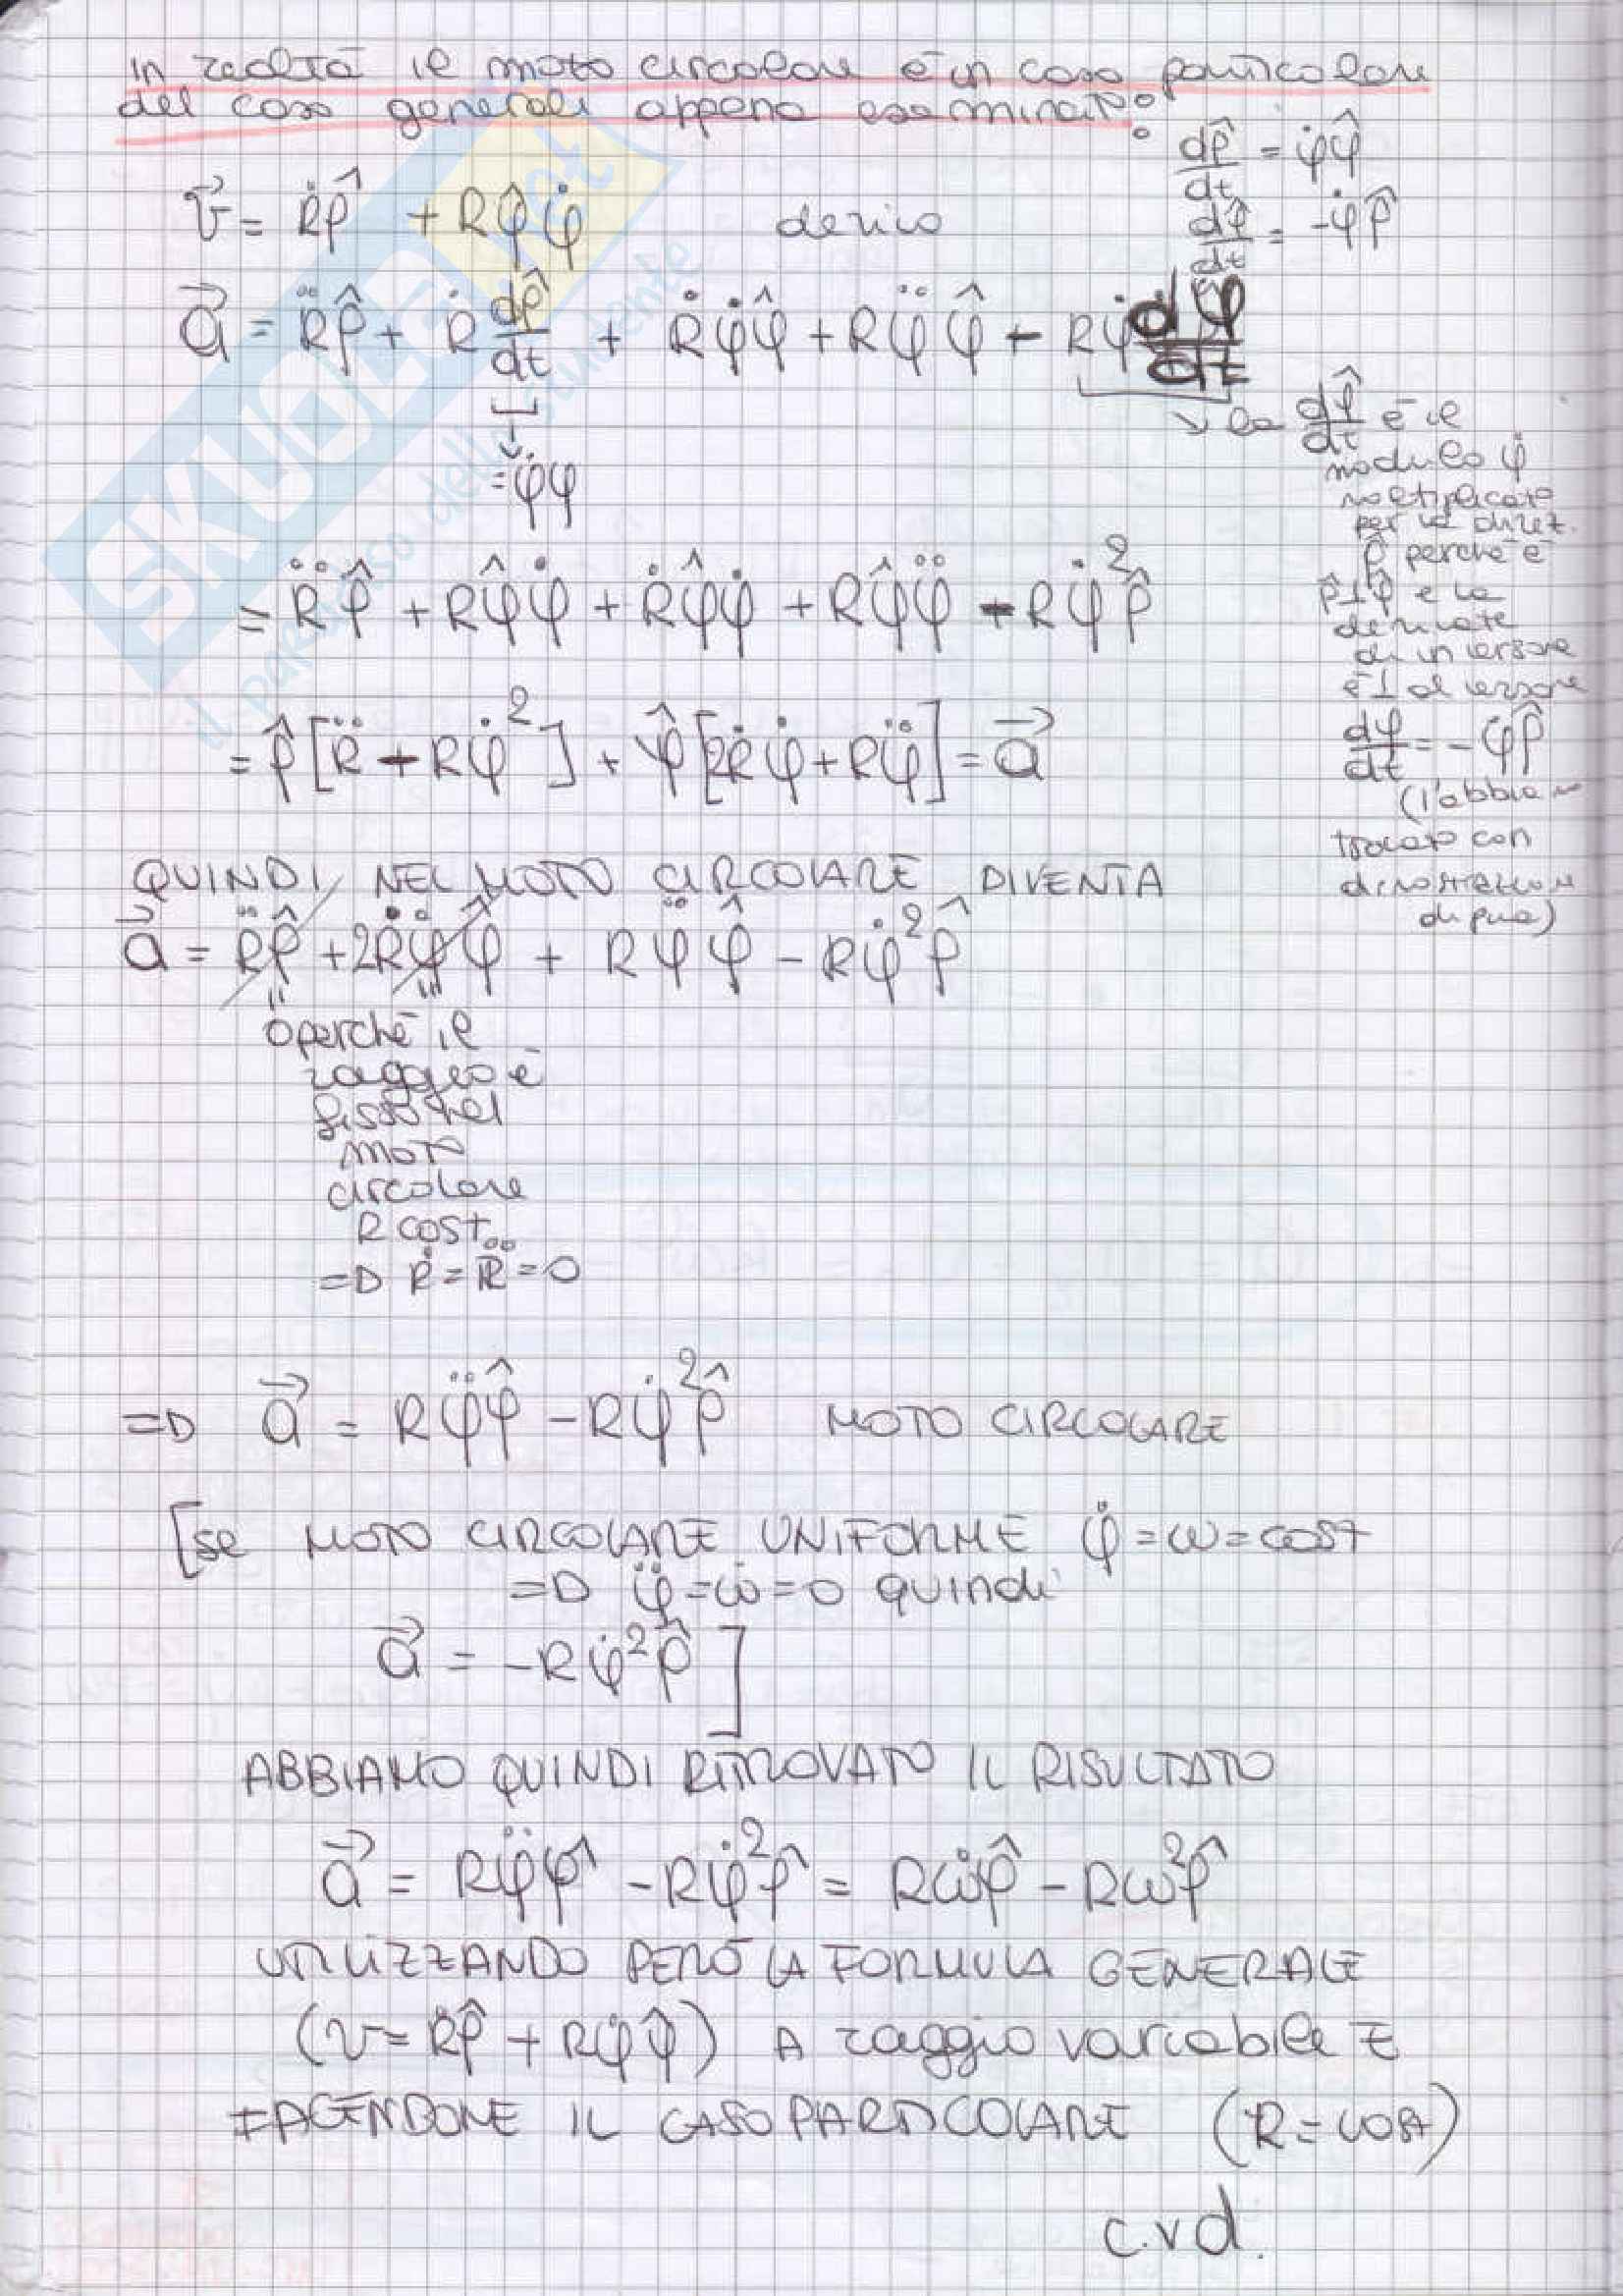 In realtà il moto circolare è un caso particolare
del caso generale appena esaminato:
dρ̂/dt = φ̇φ̂
dφ̂/dt = -φ̇ρ̂
v⃗ = Ṙρ̂ + Rφ̂φ̇ derivo
a⃗ = R̈ρ̂ + Ṙ dρ̂/dt + Ṙφ̇φ̂ + Rφ̈φ̂ + Rφ̇ dφ̂/dt
= φ̇φ
↘ la dφ̂/dt è il
modulo φ̇
moltiplicato
per la direz.
ρ̂ perchè è
ρ̂⊥φ̂ e la
derivata
di un versore
è ⊥ al versore
dφ/dt = -φ̇ρ̂
(l'abbiamo
trovato con
dimostrazione
di pura)
= R̈ρ̂ + Ṙφ̂φ̇ + Ṙφ̂φ̇ + Rφ̂φ̈ - Rφ̇²ρ̂
= ρ̂[R̈ - Rφ̇²] + φ̂[2Ṙφ̇ + Rφ̈] = a⃗
QUINDI, NEL MOTO CIRCOLARE DIVENTA
a⃗ = R̈ρ̂ + 2Ṙφ̇φ̂ + Rφ̈φ̂ - Rφ̇²ρ̂
0 perchè il
raggio è
fisso nel
moto
circolare
R cost.
=D Ṙ = R̈ = 0
=D a⃗ = Rφ̈φ̂ - Rφ̇²ρ̂ MOTO CIRCOLARE
[se MOTO CIRCOLARE UNIFORME φ̇ = ω = cost
=D φ̈ = ω̇ = 0 quindi
a⃗ = -Rφ̇²ρ̂]
ABBIAMO QUINDI RITROVATO IL RISULTATO
a⃗ = Rφ̈φ̂ - Rφ̇²ρ̂ = Rω̇φ̂ - Rω²ρ̂
UTILIZZANDO PERÒ LA FORMULA GENERALE
(v = Ṙρ̂ + Rφ̇φ̂) A raggio variabile E
FACENDONE IL CASO PARTICOLARE (R = cost)
c.v.d.
SKUOLA.net
il paradiso dello studente